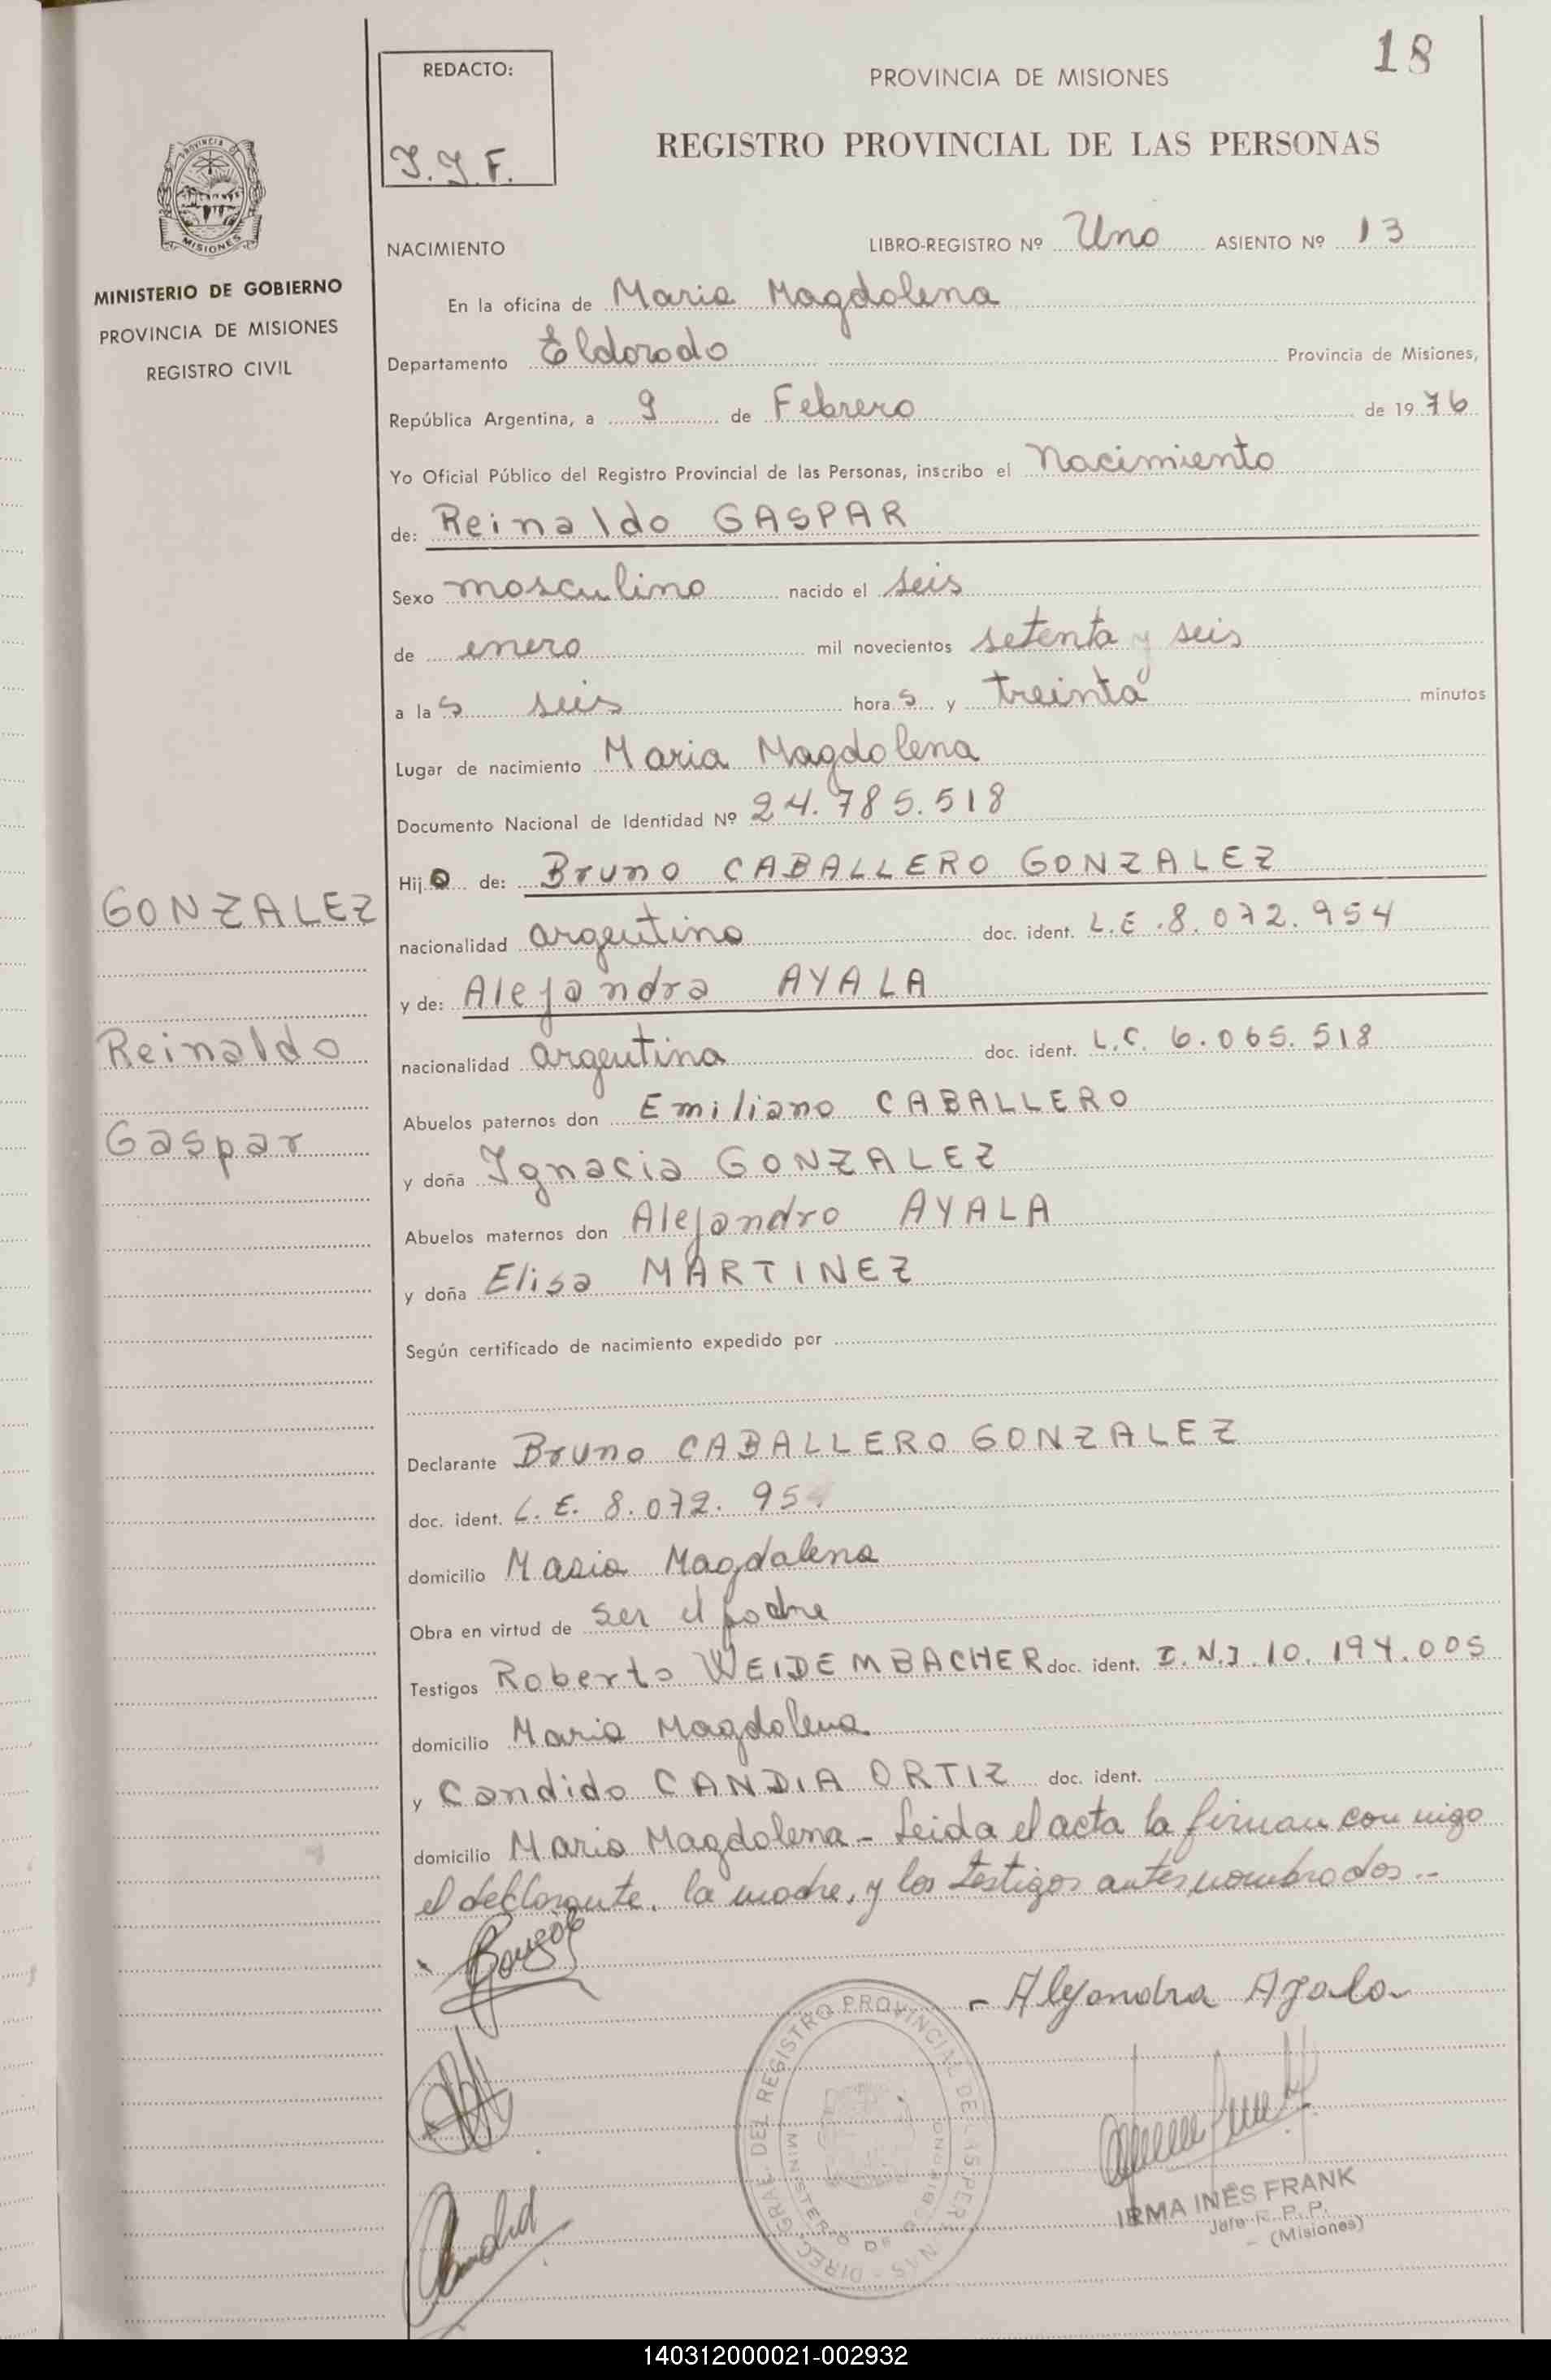 18
REDACTO:
PROVINCIA DE MISIONES
J.J.F.
REGISTRO PROVINCIAL DE LAS PERSONAS
PROVINCIA D
MISIONES
NACIMIENTO LIBRO-REGISTRO Nº Uno ASIENTO Nº 13
MINISTERIO DE GOBIERNO
PROVINCIA DE MISIONES
REGISTRO CIVIL
En la oficina de Maria Magdalena
Departamento Eldorado Provincia de Misiones,
República Argentina, a 9 de Febrero de 1976
Yo Oficial Público del Registro Provincial de las Personas, inscribo el Nacimiento
de: Reinaldo GASPAR
Sexo masculino nacido el seis
de enero mil novecientos setenta y seis
a las seis horas y treinta minutos
Lugar de nacimiento Maria Magdalena
Documento Nacional de Identidad Nº 24.785.518
Hijo de: Bruno CABALLERO GONZALEZ
GONZALEZ
nacionalidad argentino doc. ident. L.E.8.072.954
y de: Alejandra AYALA
Reinaldo
nacionalidad argentina doc. ident. L.C. 6.065.518
Abuelos paternos don Emiliano CABALLERO
Gaspar
y doña Ignacia GONZALEZ
Abuelos maternos don Alejandro AYALA
y doña Elisa MARTINEZ
Según certificado de nacimiento expedido por
Declarante Bruno CABALLERO GONZALEZ
doc. ident. L.E. 8.072.954
domicilio Maria Magdalena
Obra en virtud de ser el padre
Testigos Roberto WEIDEMBACHER doc. ident. I.N.I.10.194.005
domicilio Maria Magdalena
y Candido CANDIA ORTIZ doc. ident.
domicilio Maria Magdalena - Leida el acta la firman con migo
el declarante, la madre, y los testigos antes nombrados.-
- Alejandra Ayala
DIREC. GRAL. DEL REGISTRO PROVINCIAL DE LAS PERSONAS
MINISTERIO DE GOBIERNO
IRMA INÉS FRANK
Jefe R. P. P.
(Misiones)
140312000021-002932